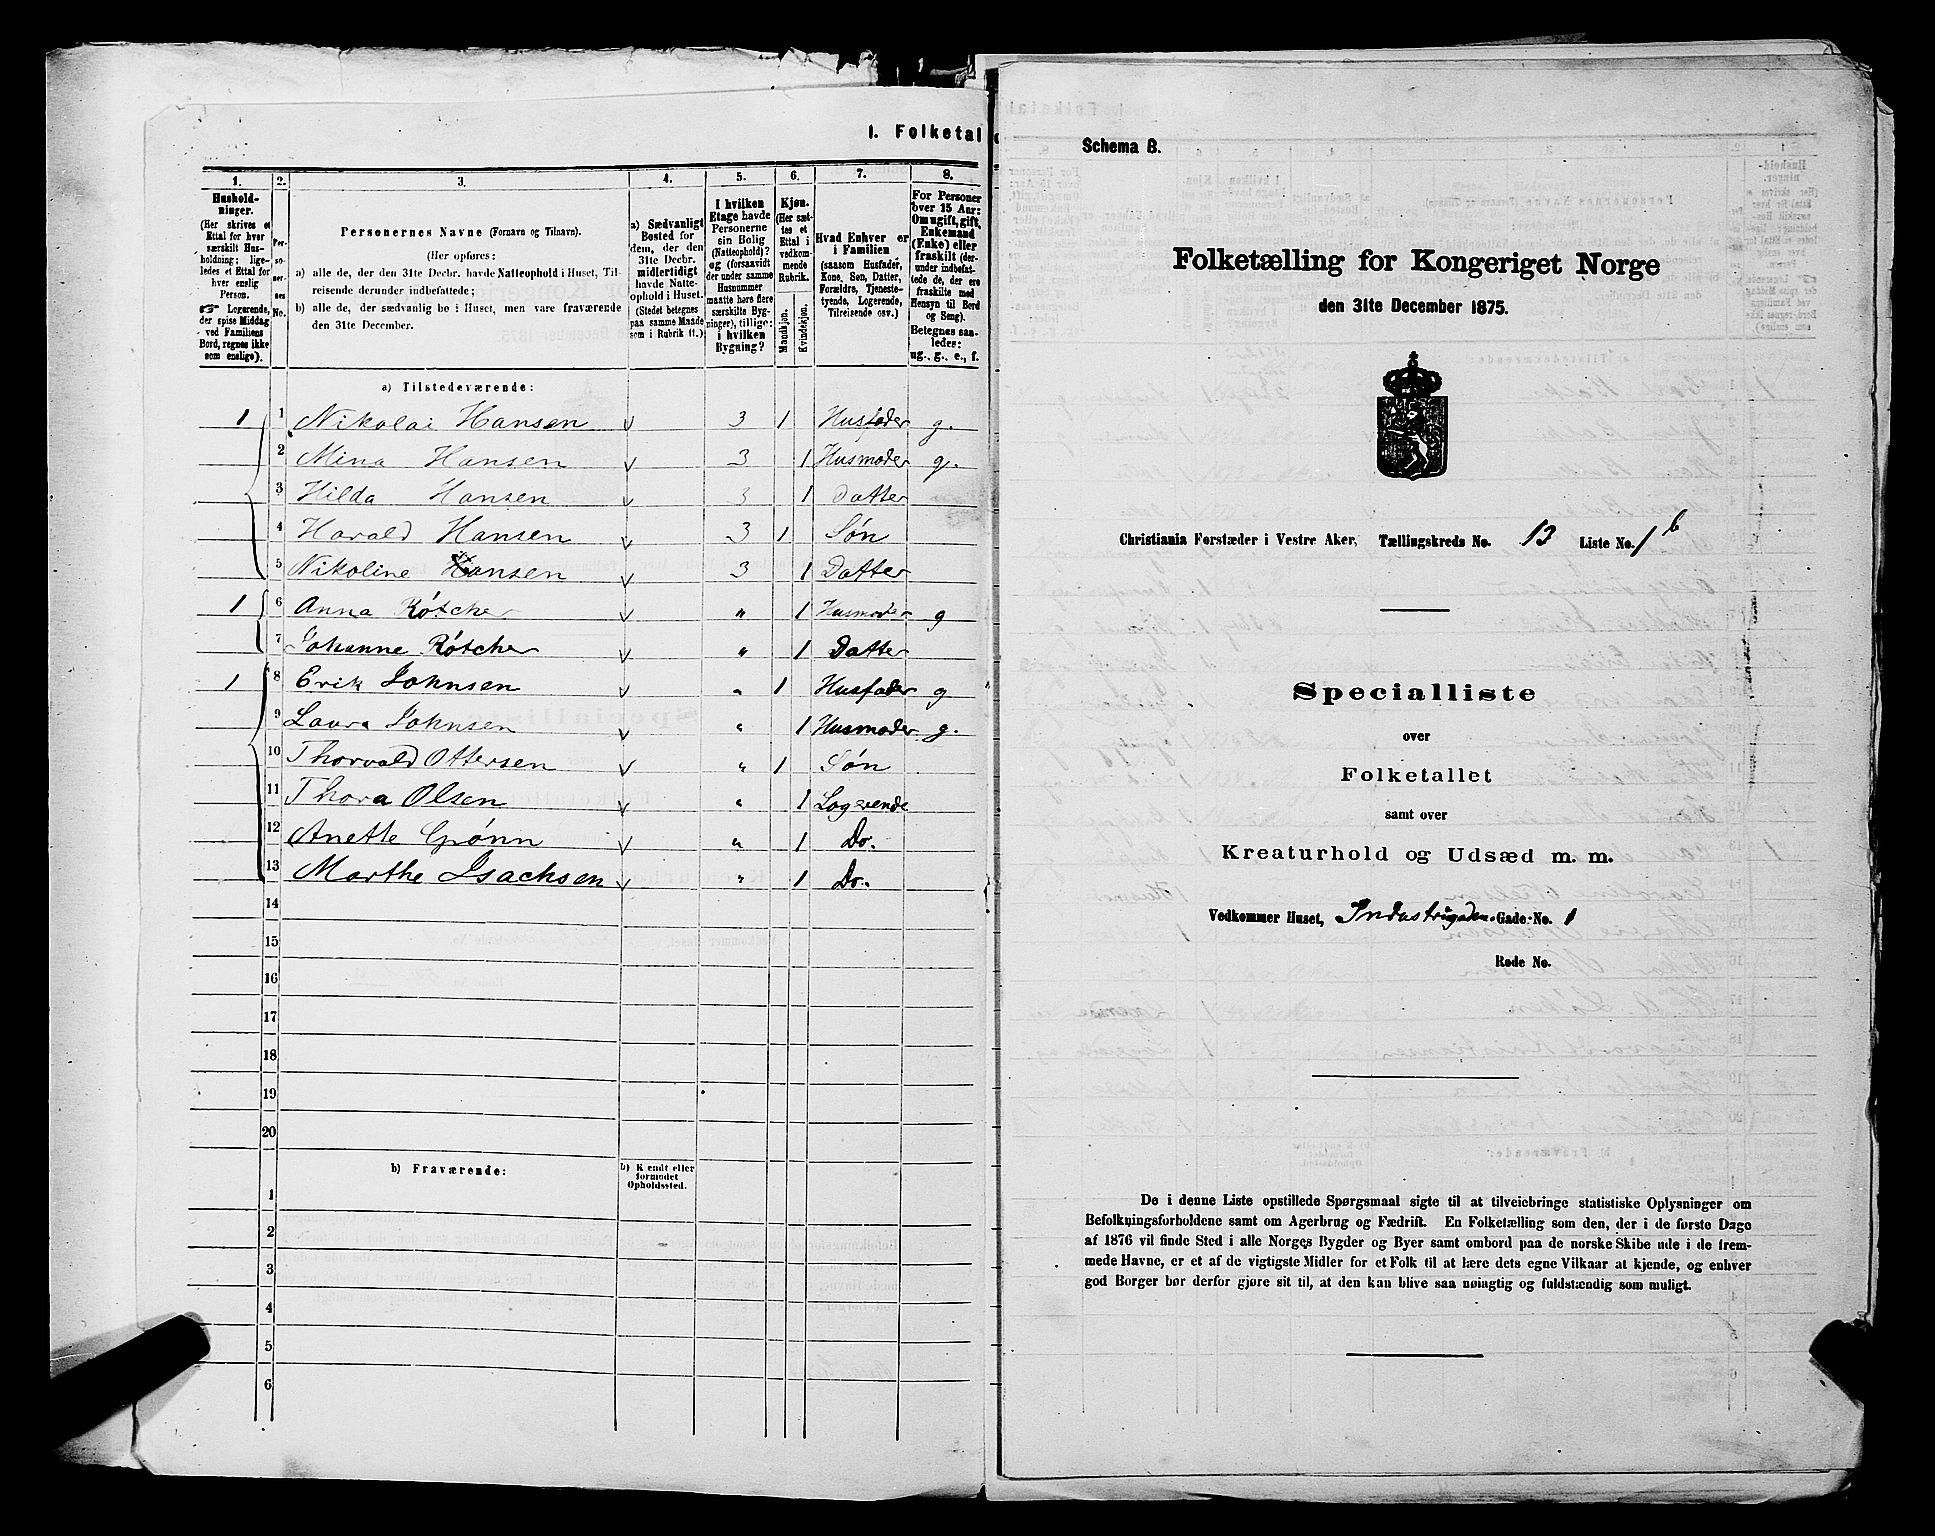 1. Folketal
1. 2. 3. 4. 5. 6. 7. 8.
Hushold-
ninger.
(Her skrives et
Ettal for hver
særskilt Hus-
holdning; lige-
ledes et Ettal for
hver enslig
Person.
☞ Logerende,
der spise Middag
ved Familiens
Bord, regnes ikke
som enslige).
Per-
so-
ner-
nes
No.
Personernes Navne (Fornavn og Tilnavn).
(Her opføres:
a) alle de, der den 31te Decbr. havde Natteophold i Huset, Til-
reisende derunder indbefattede;
b) alle de, der sædvanlig bo i Huset, men vare fraværende
den 31te December.
a) Sædvanligt
Bosted for
dem, der den
31te Decbr.
midlertidigt
havde Natte-
ophold i Huset.
(Stedet betegnes
paa samme Maade
som i Rubrik 11.)
I hvilken
Etage havde
Personerne
sin Bolig
(Natteophold)?
og (forsaavidt
der under samme
Husnummer
maatte høre flere
særskilte Byg-
ninger), tillige:
i hvilken
Bygning?
Kjøn.
(Her sæt-
tes et
Ettal i
vedkom-
mende
Rubrik.
Mandkjøn.
Kvindekjøn.
Hvad Enhver er
i Familien
(saasom Husfader,
Kone, Søn, Datter,
Forældre, Tjeneste-
tyende, Logerende,
Tilreisende osv.)
For Personer
over 15 Aar:
Om ugift, gift,
Enkemand
(Enke) eller
fraskilt (der-
under indbefat-
tede de, der ere
fraskilte med
Hensyn til Bord
og Seng).
Betegnes saa-
ledes:
ug., g., e., f.
a) Tilstedeværende:
1 1 Nikolai Hansen v 3 1 Husfader g.
2 Mina Hansen v 3 1 Husmoder g.
3 Hilda Hansen v 3 1 Datter
4 Harald Hansen v 3 1 Søn
5 Nikoline Hansen v 3 1 Datter
1 6 Anna Røtcher v " 1 Husmoder g
7 Johanne Røtcher v " 1 Datter
1 8 Erik Johnsen v " 1 Husfader g
9 Laura Johnsen v " 1 Husmoder g.
10 Thorvald Ottersen v " 1 Søn
11 Thora Olsen v " 1 Logerende
12 Anette Grønn v " 1 Do.
13 Marthe Isachsen v " 1 Do.
14
15
16
17
18
19
20
b) Fraværende:
b) Kjendt eller
formodet
Opholdssted.
1
2
3
4
5
6
Schema B.
Folketælling for Kongeriget Norge
den 31te December 1875.
Christiania Forstæder i Vestre Aker, Tællingskreds No. 13 Liste No. 1 b
Specialliste
over
Folketallet
samt over
Kreaturhold og Udsæd m. m.
Vedkommer Huset, Industrigaden-Gade-No. 1
Rode No.
De i denne Liste opstillede Spørgsmaal sigte til at tilveiebringe statistiske Oplysninger om
Befolkningsforholdene samt om Agerbrug og Fædrift. En Folketælling som den, der i de første Dage
af 1876 vil finde Sted i alle Norges Bygder og Byer samt ombord paa de norske Skibe ude i de frem-
mede Havne, er et af de vigtigste Midler for et Folk til at lære dets egne Vilkaar at kjende, og enhver
god Borger bør derfor gjøre sit til, at den kan blive saa nøiagtig og fuldstændig som muligt.